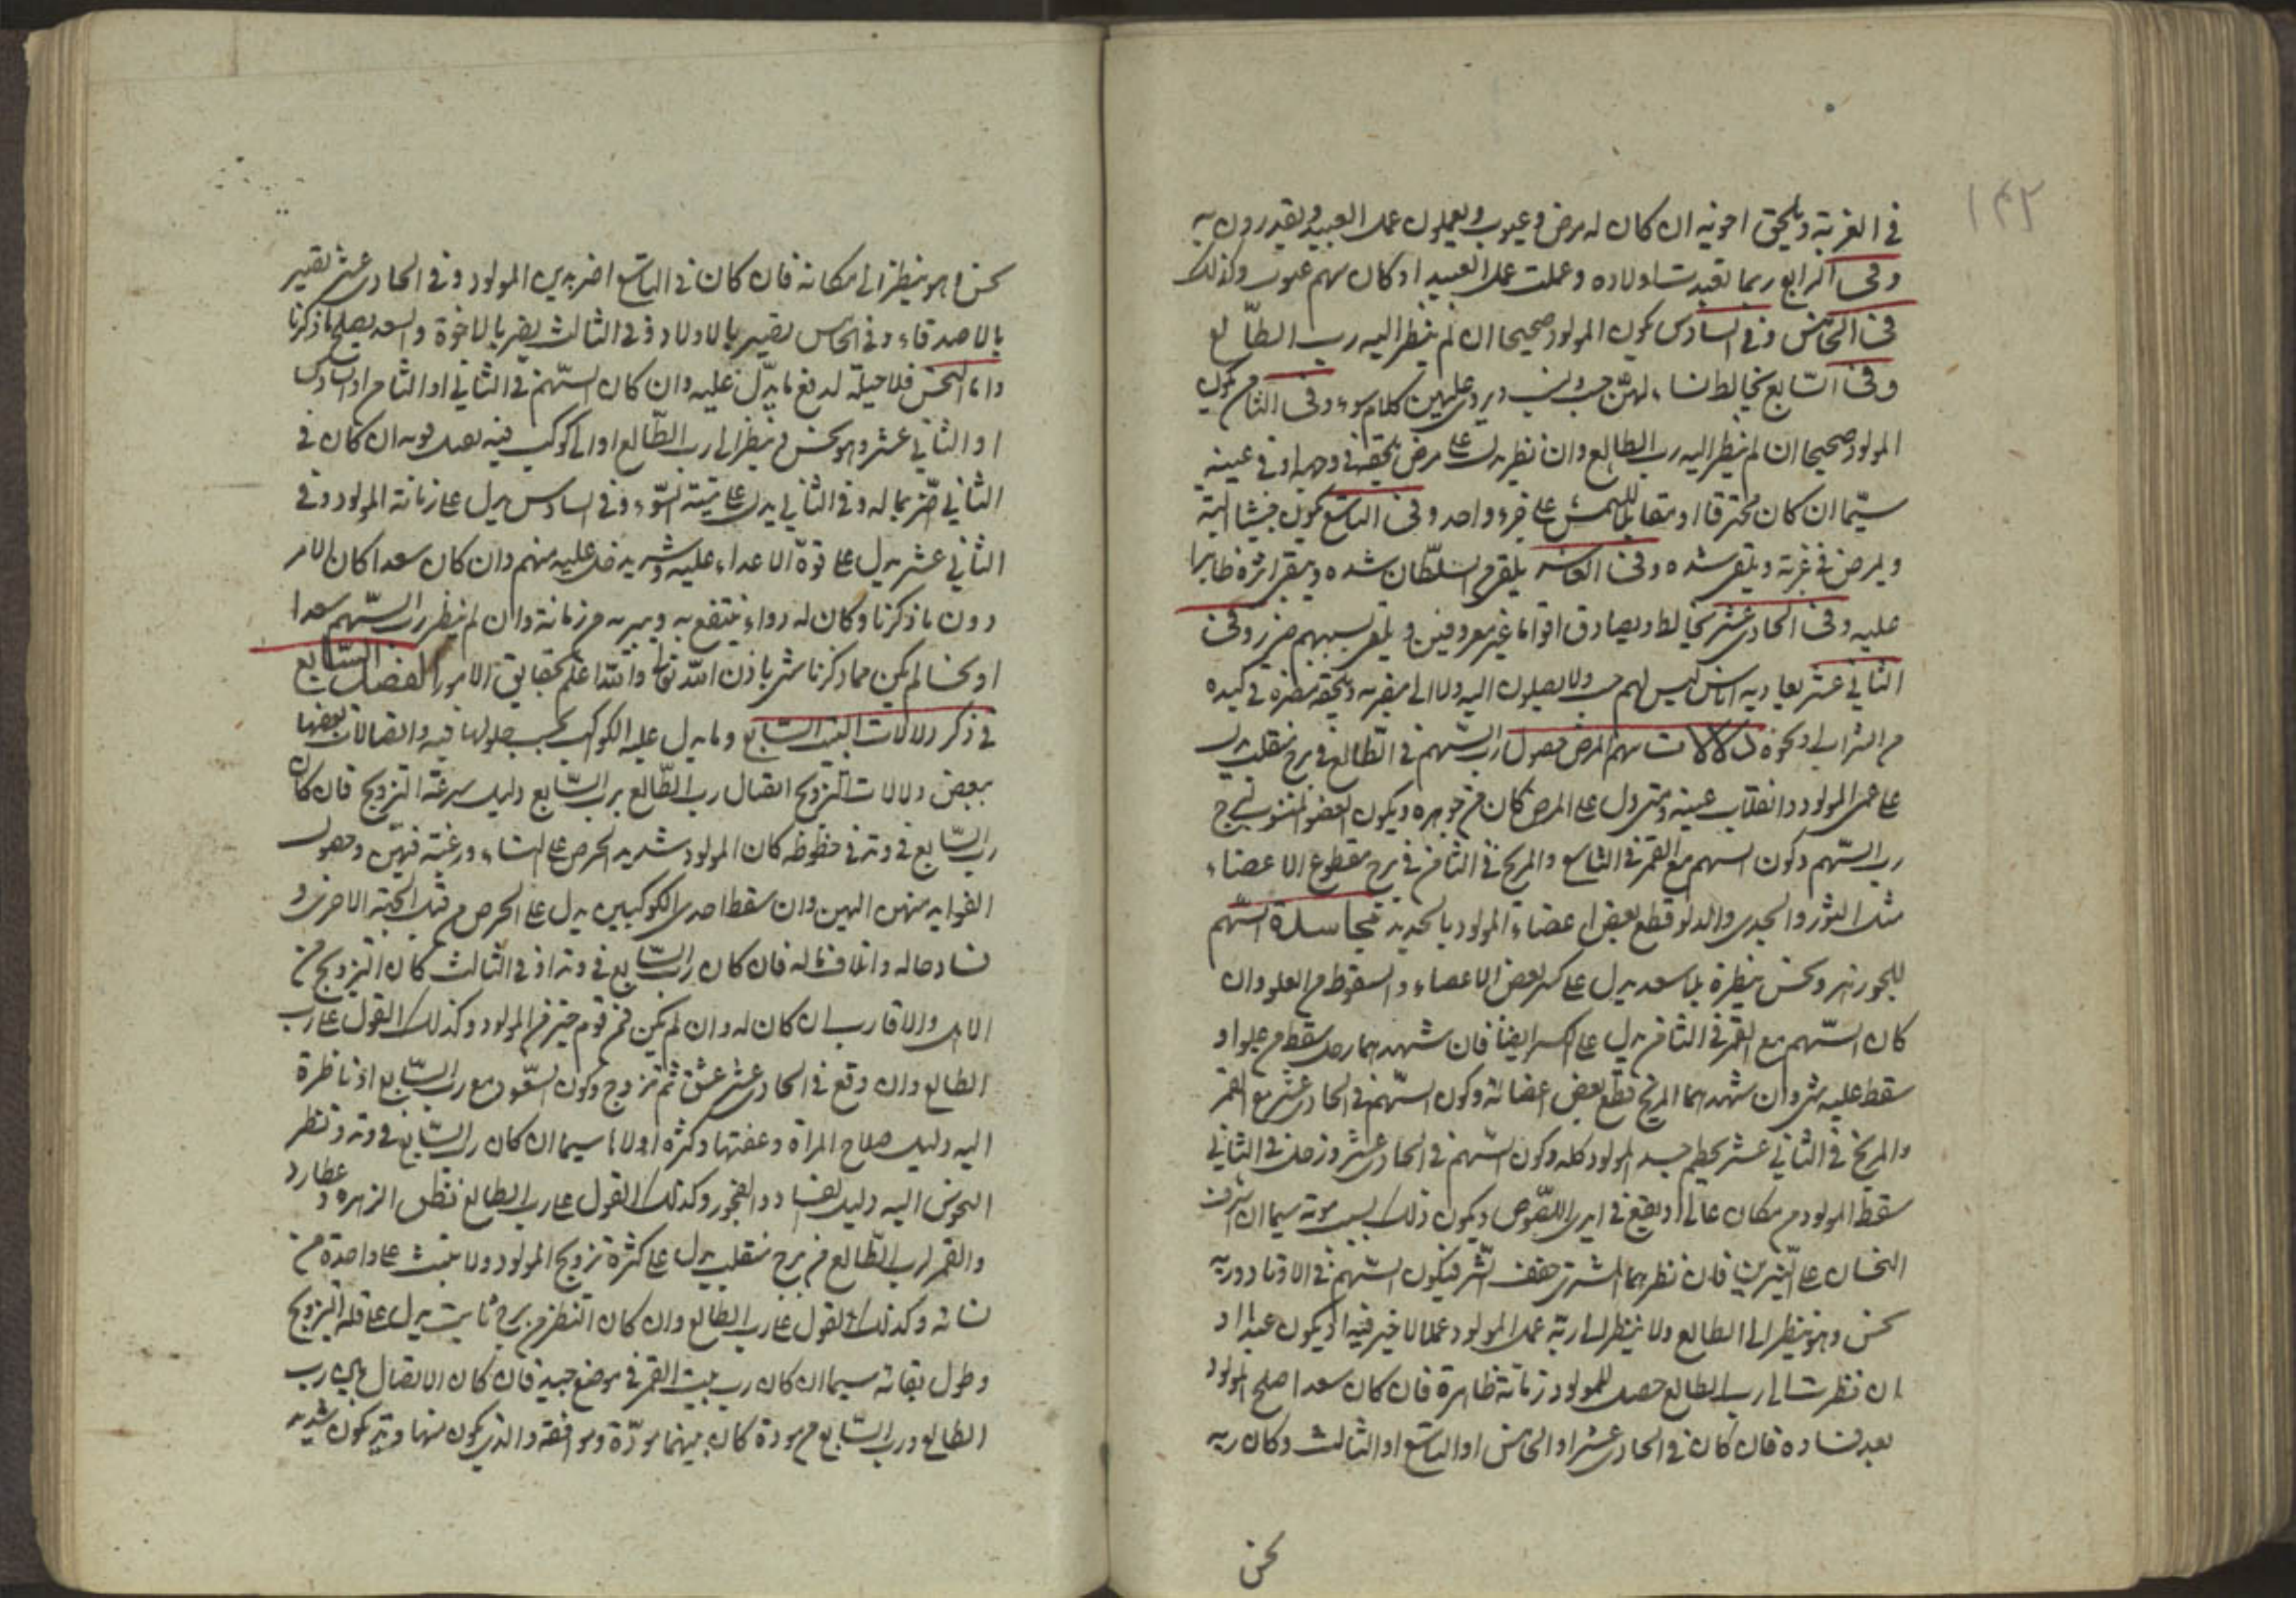 ١٤٢
في الغربة ويلحق اخوته ان كان له مرض وعيوب ويعملون عمل العبيد ويقدرون به
وفي الرابع ربما تعبدت اولاده وعملت عمل العبيد او كان بهم عيوب وكذلك
في الخامس وفي السادس يكون المولود صحيحا ان لم ينظر اليه رب الطالع
وفي السابع يخالط نساء لهن حسب ونسب ويردى عليهن كلام سوء وفي الثامن يكون
المولود صحيحا ان لم ينظر اليه رب الطالع وان نظر يدل على مرض يلحقه في وجهه او في عينيه
سيما ان كان محترقا او مقابلا للشمس على جزء واحد وفي التاسع يكون خبيثا البتة
ويمرض في غربة ويلقى شدة وفي العاشر يلقى من السلطان شدة ويبقى اثره ظاهرا
عليه وفي الحادي عشر يخالط ويصادق اقواما غير معروفين ويلقى بسببهم ضرر وفي
الثاني عشر يعاديه اناس ليس لهم حسب ولا يصلون اليه ولا الى مضرته ويلحقه مضرة في كبده
من الشراب ونحوه دلالات سهم المرض حصول رب السهم في الطالع في برج منقلب يدل
على عمى المولود وانقلاب عينيه ومتى دل على المرض كان من جوهره ويكون العضو المنسوب لبرج
رب السهم وكون السهم مع القمر في التاسع والمريخ في الثامن في برج مقطوع الاعضاء
مثل الثور والجدي والدلو قطع بعض اعضاء المولود بالحديد مجاسدة السهم
للجوزهر ونحس ينظره بلا سعد يدل على كسر بعض الاعضاء والسقوط من العلو وان
كان السهم مع القمر في الثامن يدل على الكسر ايضا فان شهد بهما زحل سقط من علو او
سقط عليه شيء وان شهد بهما المريخ قطع بعض اعضائه وكون السهم في الحادي عشر مع القمر
والمريخ في الثاني عشر يحطم جسد المولود كله وكون السهم في الحادي عشر وزحل في الثاني
سقط المولود من مكان عال او يقع في ايدي اللصوص ويكون ذلك سبب موته سيما ان اشرف
النحسان على النيرين فان نظر بهما المشتري خفف الشر فيكون السهم في الاوتاد وربه
نحس وهو ينظر الى الطالع ولا ينظر الى ربه عمل المولود عملا لا خير فيه او يكون عبدا و
ان نظرت الى رب الطالع حصل للمولود زمانة ظاهرة فان كان سعدا صلح المولود
بعد فساده فان كان في الحادي عشر او الخامس او التاسع او الثالث وكان ربه
نحس
نحس وهو ينظر الى مكانه فان كان في التاسع اضر بدين المولود وفي الحادي عشر يضر
بالاصدقاء وفي الخامس يضر بالاولاد وفي الثالث يضر بالاخوة والسعد يصلح ما ذكرنا
واما النحس فلا حيلة لدفع ما يدل عليه وان كان السهم في الثاني او الثامن او السادس
او الثاني عشر وهو نحس ينظر الى رب الطالع او الى كوكب فيه بعد قوته ان كان في
الثاني ضر بماله وفي الثاني يدل على ميتة السوء وفي السادس يدل على زمانة المولود وفي
الثاني عشر يدل على قوة الاعداء عليه وشر يدخل عليه منهم وان كان سعدا كان الامر
دون ما ذكرنا وكان له دواء ينتفع به ويبرء به من زمانة وان لم ينظر رب السهم سعدا
او نحسا لم يكن مما ذكرنا شيء باذن الله تعالى والله اعلم بحقايق الامور الفصل السابع
في ذكر دلالات البيت السابع وما يدل عليه الكواكب بحسب حلولها فيه واتصالات بعضها
ببعض دلالات التزويج اتصال رب الطالع برب السابع دليل سرعة التزويج فان كان
رب السابع في وتد في حظوظه كان المولود شديد الحرص على النساء ورغبته فيهن وحصول
الفوايد منهن اليهن وان سقط احدى الكوكبين يدل على الحرص من تلك الجهة الاخرى و
فساد حاله واتلاف ماله فان كان رب السابع في وتد او في الثالث كان التزويج من
الاهل والاقارب ان كان له وان لم يكن فمن قوم خير من المولود وكذلك القول على رب
الطالع وان وقع في الحادي عشر عشق ثم تزوج وكون السعود مع رب السابع او ناظرة
اليه دليل صلاح المراة وعفتها وكثرة اولادها سيما ان كان رب السابع في وتد ونظر
النحوس اليه دليل الفساد والفجور وكذلك القول على رب الطالع نظر الزهرة وعطارد
والقمر لرب الطالع من برج منقلب يدل على كثرة تزويج المولود ولا يثبت على واحدة من
نسائه وكذلك القول على رب الطالع وان كان النظر من برج ثابت يدل على قلة التزويج
وطول بقائه سيما ان كان رب بيت القمر في موضع جيد فان كان الاتصال بين رب
الطالع ورب السابع من مودة كان بينهما مودة وموافقة والذي يكون منها وتد يكون شديد